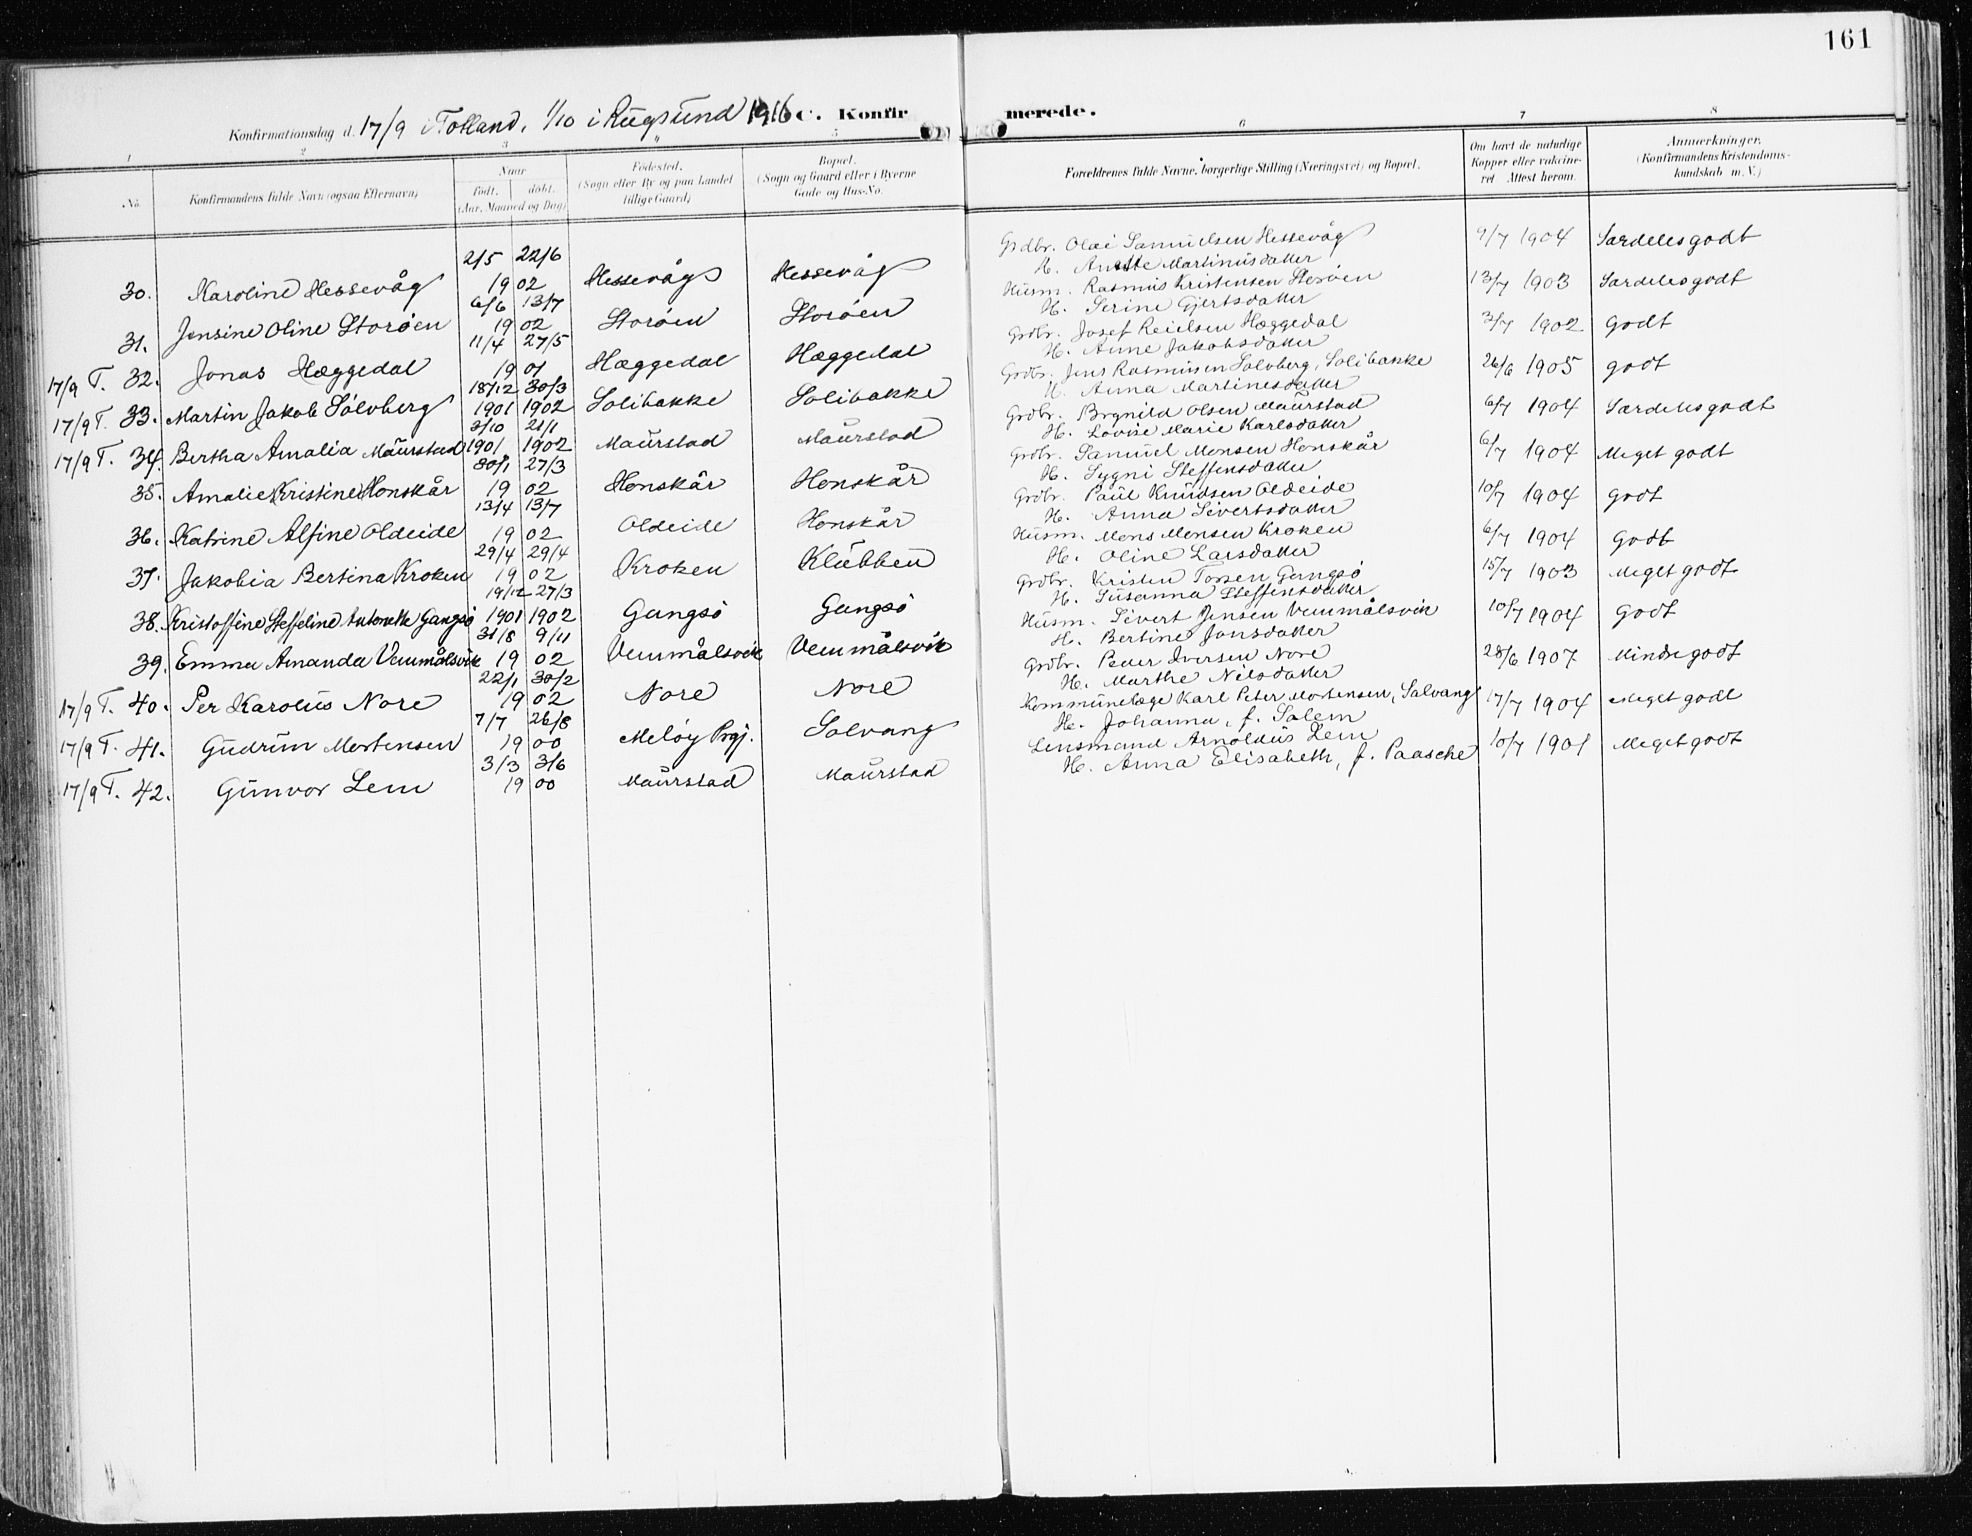 161
Konfirmationsdag d. 17/9 i Totland, 1/10 i Rugsund 1916 C. Konfirmerede.
1 2 3 5 6 7 8
No. Konfirmandens fulde Navn (ogsaa Efternavn) Naar født. døbt. (Aar, Maaned og Dag) Fødested. (Sogn eller By og paa Landet tillige Gaard) Bopæl. (Sogn og Gaard eller i Byerne Gade og Hus-No. Forældrenes fulde Navne, borgerlige Stilling (Næringsvei) og Bopæl. Om havt de naturlige Kopper eller vaccineret. Attest herom. Anmærkninger. (Konfirmandens Kristendomskundskab m. V.)
2/5 22/6 Grdbr. Olai Samuelsen Hessevåg 9/7 1904 Særdeles godt
30. Karoline Hessevåg 19 02 Hessevåg Hessevåg H. Anette Martinusdatter
6/6 13/7 Husm. Rasmus Kristensen Storøen 13/7 1903 Særdeles godt
31. Jensine Oline Storøen 19 02 Storøen Storøen H. Serine Gjertsdatter
11/4 27/5 Grdbr. Josef Reielsen Hæggedal 3/7 1902 Godt
17/9 T. 32. Jonas Hæggedal 19 01 Hæggedal Hæggedal H. Anne Jakobsdatter
18/12 30/3 Grdbr. Jens Rasmussen Sølvberg, Solibakke 26/6 1905 godt
17/9 T. 33. Martin Jakob Sølvberg 1901 1902 Solibakke Solibakke H. Anna Martinesdatter
3/10 21/1 Grdbr. Brynild Olsen Maurstad 6/7 1904 Særdeles godt
17/9 T. 34. Bertha Amalia Maurstad 1901 1902 Maurstad Maurstad H. Lovise Marie Karlsdatter
30/1 27/3 Grdbr. Samuel Monsen Honskår 6/7 1904 Meget godt
35. Amalie Kristine Honskår 19 02 Honskår Honskår H. Sygni Steffensdatter
13/4 13/7 Grdbr. Paul Knudsen Oldeide 10/7 1904 godt
36. Katrine Alfine Oldeide 19 02 Oldeide Honskår H. Anna Sivertsdatter
29/4 29/4 Husm. Mons Monsen Kroken 6/7 1904 Godt
37. Jakobia Bertina Kroken 19 02 Kroken Klubben H. Oline Larsdatter
19/12 27/3 Grdbr. Kristen Tosen Gangsø 15/7 1903 Meget godt
38. Kristoffine Steffeline Antonette Gangsø 1901 1902 Gangsø Gangsø H. Susanna Steffensdatter
31/8 9/11 Husm. Sivert Jensen Vemmålsvik 10/7 1904 Godt
39. Emma Amanda Vemmålsvik 19 02 Vemmålsvik Vemmålsvik H. Bertine Jonsdatter
22/1 30/2 Grdbr. Peder Iversen Nore 28/6 1907 Mindre godt
17/9 T. 40. Per Karolus Nore 19 02 Nore Nore H. Marthe Nilsdatter
7/7 26/8 Kommunelæge Karl Peter Mortensen, Solvang 17/7 1904 Meget godt
17/9 T. 41. Gudrun Mortensen 19 00 Meløy Prgj. Solvang H. Johanna, f. Salem
3/3 3/6 Lensmand Arnoldus Lem 10/7 1901 Meget godt
17/9 T. 42. Gunvor Lem 19 00 Maurstad Maurstad H. Anna Elisabeth, f. Paasche